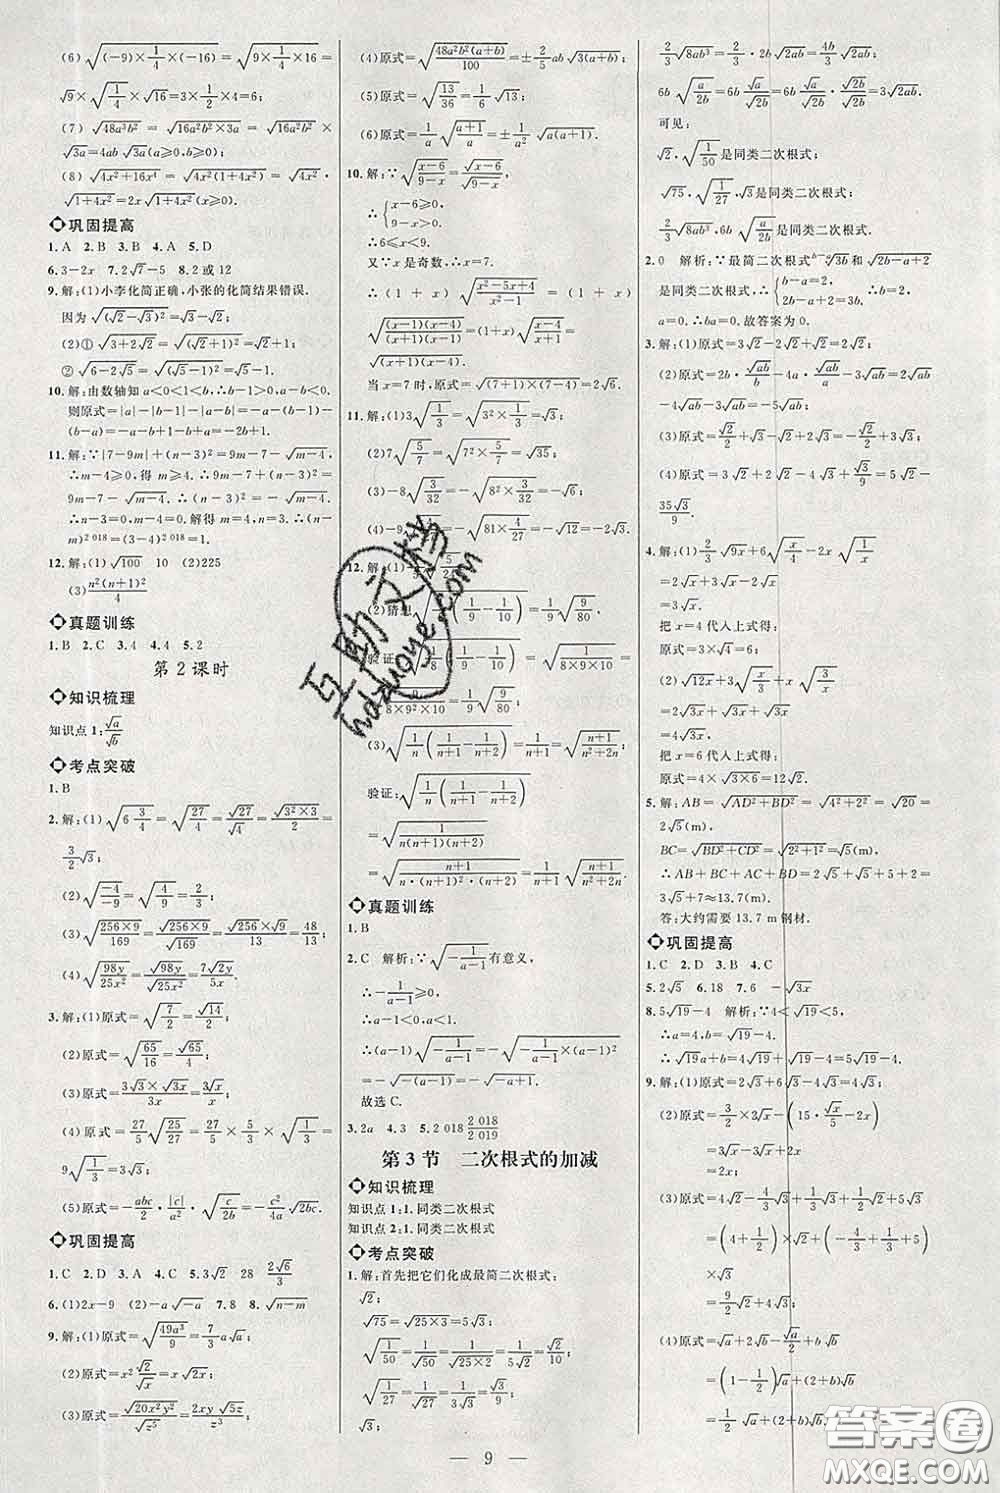 (6) √((-9)×1/4×(-16))=√(9×1/4×16)=
√9×√(1/4)×√16=3×1/2×4=6;
(7) √(48a³b²)=√(16a²b²×3a)=√(16a²b²)
×√(3a)=4ab√(3a)(a≥0,b≥0);
(8) √(4x²+16x⁴)=√(4x²(1+4x²))=√(4x²)·
√(1+4x²)=2x√(1+4x²)(x≥0).
巩固提高
1.A 2.B 3.B 4.A 5.D
6.3-2x 7.2√7-5 8.2或12
9.解:(1)小李化简正确,小张的化简结果错误.
因为√((√2-√3)²)=√3-√2;
(2)①√(3+2√2)=√((√2+1)²)=√2+1;
②√(6-2√5)=√((√5-1)²)=√5-1.
10.解:由数轴知a<0<1<b,∴b-1>0,a-b<0.
则原式=|a|-|b-1|-|a-b|=-a-(b-1)-
(b-a)=-a-b+1-b+a=1-2b.
11.解:∵|7-9m|+(n-3)²=9m-7-√(m-4),
∴m-4≥0,得m≥4.∴9m-7+(n-3)²=
9m-7-√(m-4).∴(n-3)²=-√(m-4).
∴n-3=0,m-4=0.解得m=4,n=3.∴(n-
m)^2 018=(3-4)^2 018=1.
12.解:(1)√100 10 (2)225
(3)n²(n+1)²/4
真题训练
1.B 2.C 3.4 4.4 5.2
第2课时
知识梳理
知识点1:√a/√b
考点突破
1.B
2.解:(1)√(6 3/4)=√(27/4)=√27/√4=√(3²×3)/2=
3/2√3;
(2)√(-4/-9)=√(4/9)=√4/√9=2/3;
(3)√(256×9/169)=√(256×9)/√169=√256×√9/13=48/13;
(4)√(98y/25x²)=√(98y)/√(25x²)=7√(2y)/5x.
3.解:(1)原式=√(7/2)=√14/2;
(2)原式=√(65/16)=√65/4;
(3)原式=3√3×√(3x)/3x=3√x/x;
(4)原式=27/5√(25/27)=27/5×5/3×√(1/3)=
9√(1/3)=3√3;
(5)原式=-abc/2·|c|/a²·√(c/2b)=-c²/4a√(2bc).
巩固提高
1.C 2.D 3.A 4.C 5.3√2 28 2√6/3
6.(1)2x-9 (2)-a√(-a) 7.8 8.√(n-m)
9.解:(1)原式=√(49a³/9)=7/3a√a;
(2)原式=x²√2/√x=x√(2x);
(3)原式=√(20x²y²)/√(z⁵)=2xy√(5z)/z³;
(4)原式=√(48a²b²(a+b)/100)=±2/5ab√(3(a+b));
(5)原式=√(13/36)=1/6√13;
(6)原式=1/a√((a+1)/a)=±1/a²√(a(a+1)).
10.解:∵√((x-6)/(9-x))=√(x-6)/√(9-x),
∴{x-6≥0,
9-x>0.
∴6≤x<9.
又∵x是奇数,∴x=7.
∴(1+x)√((x²-5x+4)/(x²-1))=(1+x)
√((x-1)(x-4)/(x-1)(x+1))=(1+x)√((x-4)/(x+1))=
√((x+1)(x-4)).
当x=7时,原式=√((7+1)(7-4))=2√6.
11.解:(1)3√(1/3)=√(3²×1/3)=√3;
(2)7√(5/7)=√(7²×5/7)=√35;
(3)-8√(3/32)=-√(8²×3/32)=-√6;
(4)-9√(4/27)=-√(81×4/27)=-√12=-2√3.
12.解:(1)
(2)猜想√(1/8(1/9-1/10))=1/9√(9/80).
验证:√(1/8(1/9-1/10))=√(1/(8×9×10))=
√(9/(8×9²×10))=1/9√(9/80).
(3)√(1/n(1/(n+1)-1/(n+2)))=1/(n+1)√((n+1)/(n²+2n));
验证:√(1/n(1/(n+1)-1/(n+2)))
=√(1/(n(n+1)(n+2)))
=√((n+1)/(n·(n+1)²·(n+2)))=1/(n+1)√((n+1)/(n²+2n)).
真题训练
1.B
2.C 解析:∵√(-1/(a-1))有意义,
∴-1/(a-1)≥0,
∴a-1<0,a<1.
∴(a-1)√(-1/(a-1))=-√(-1/(a-1)×(a-1)²)
=-√(-(a-1))=-√(-a+1).
故选C.
3.2a 4.3 5.2 018√(2 018/2 019)
第3节 二次根式的加减
知识梳理
知识点1:1.同类二次根式
知识点2:1.同类二次根式
考点突破
1.解:首先把它们化成最简二次根式:
√2;
√75=√(25×3)=5√3;
√(1/50)=1/√50=1/√(25×2)=1/5√2=√2/10;
√(1/27)=1/√27=1/3√3=√3/9;
√3;
2/3√(8ab³)=2/3·2b√(2ab)=4b/3√(2ab);
6b√(a/2b)=6b√a/√(2b)=6b√a/√(2b)×√(2b)/√(2b)=3√(2ab).
可见:
√2,√(1/50)是同类二次根式;
√75,√(1/27),√3是同类二次根式;
2/3√(8ab³),6b√(a/2b)是同类二次根式.
2.0 解析:∵最简二次根式 ᵇ⁻ᵃ√(3b)和√(2b-a+2)
是同类二次根式,∴{b-a=2,
2b-a+2=3b.∴b=2,
a=0.∴ba=0.故答案为0.
3.解:(1)原式=3√2-2√2+√2=2√2;
(2)原式=2·√(ab)/b-4a·√(ab)/a=2√(ab)/b
-4√(ab);
(3)原式=√2/2+√3-√2+2√3=-√2/2+3√3;
(4)原式=3√2+2√2-4√3+√3/9=5√2-
35√3/9.
4.解:(1)2/3√(9x)+6√(x/4)-2x√(1/x)
=2√x+3√x-2√x
=3√x.
把x=4代入上式得:
原式=3√4=6.
(2)√(12x)+√(3x)+x√(3/x)
=2√(3x)+√(3x)+√(3x)
=4√(3x).
把x=6代入上式得:
原式=4×√(3×6)=12√2.
5.解:AB=√(AD²+BD²)=√(4²+2²)=√20=
2√5(m).
BC=√(BD²+CD²)=√(2²+1²)=√5(m).
∴AB+BC+AC+BD=2√5+√5+5+2=
3√5+7≈13.7(m).
答:大约需要13.7 m钢材.
巩固提高
1.C 2.D 3.B 4.C
5.2√5 6.18 7.6 -√(3x)
8.5√19-4 解析:∵4<√19<5,
∴a=4,b=√19-4.
∴√19a+b=4√19+√19-4=5√19-4.
9.解:(1)原式=2√3+6√3-4√3=4√3;
(2)原式=1/3×3√(2x)-(15·√x/5-2x)
=3√x-3√x+2x
=2x;
(3)原式=4√2-4/3√3+1/2√2-1/3√3+6√3
=(4+1/2)×√2+(-4/3-1/3+6)
×√3
=9/2√2+13/3√3;
(4)原式=√a+2√b-√a/2+b√b
=(1-1/2)√a+(2+b)√b
=1/2√a+(2+b)√b.
9
互助文档
hdzuoye.com
答案圈
MXQE.COM